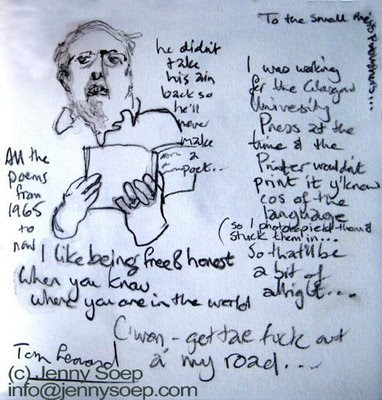 To the small
he didn't
take
his ain
back so
he'll
never
make
a
poet...
All the
poems
from
1965
to
now
I was working
for the Glasgow
University
Press at the
time & the
Printer wouldn't
print it y'know
cos of the
language
(so I photocopied them &
stuck them in...
So that'll be
a bit of
alright....
I like being free & honest
When you know
where you are in the world
C'mon - get tae fuck out
a' my road...
Tom Leonard
(c) Jenny Soep
info@jennysoep.com